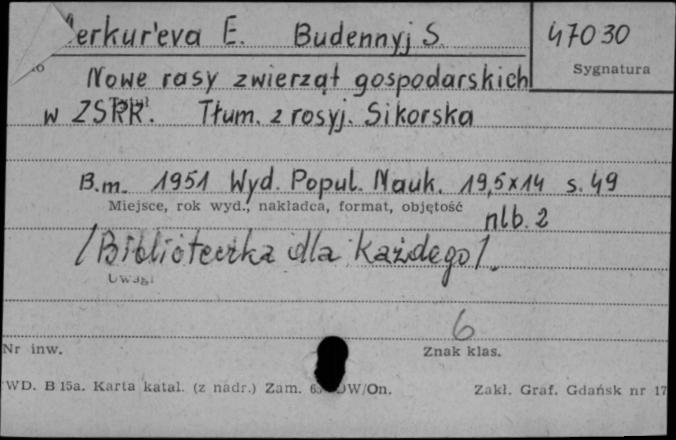 Merkur'eva E. Budennyj S. 47030
Sygnatura
Nowe rasy zwierząt gospodarskich
w ZSRR. Tłum. z rosyj. Sikorska
B.m. 1951 Wyd. Popul. Nauk. 19,5x14 s. 49
Miejsce, rok wyd., nakładca, format, objętość
nlb. 2
/Biblioteczka dla każdego/.
Uwagi
6
Nr inw. Znak klas.
WD. B 15a. Karta katal. (z nadr.) Zam. W/On. Zakł. Graf. Gdańsk nr 17